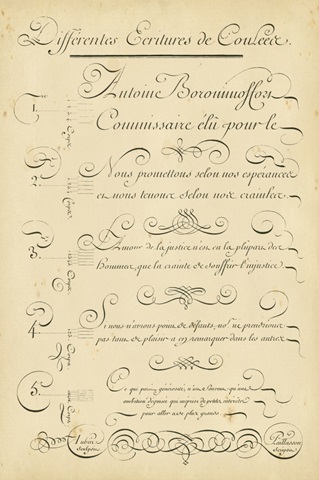 Différentes Ecritures de Coulées.
1. Corps
Antoine
Commissaire élû pour le
2. Corps
Nous promettons selon nos esperances
et nous tenons selon nos craintes.
3. Corps
L'Amour de la justice n'est en la plûpart des
Hommes, que la crainte de souffrir l'injustice
4. Corps
Si nous n'avions point de défauts, nous ne prendrions
pas tant de plaisir a en remarquer dans les autres
5. Corps
Ce qui paroit générosité, n'est souvent qu'une
ambition déguisée qui méprise de petits intérêts
pour aller a de plus grands.
Aubin
Sculpsit
Paillasson
Scripsit